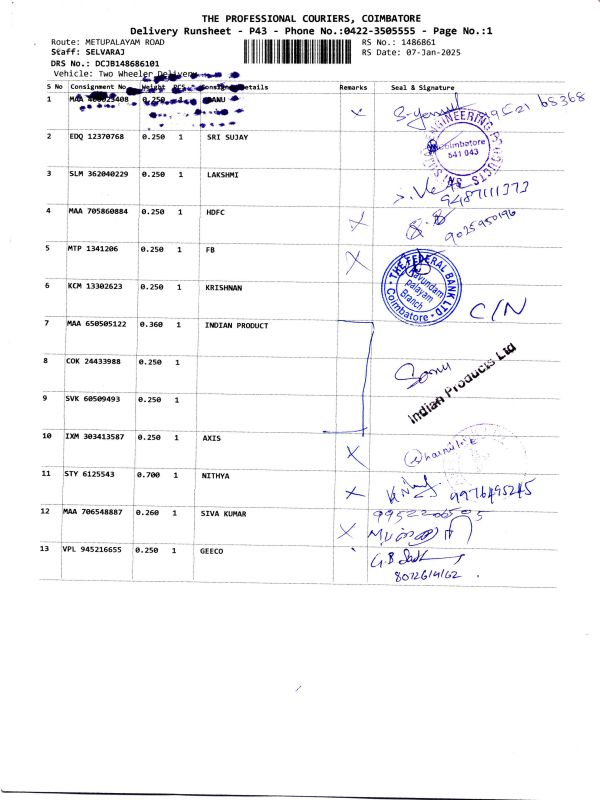 THE PROFESSIONAL COURIERS, COIMBATORE
Delivery Runsheet - P43 - Phone No.:0422-3505555 - Page No.:1
Route: METUPALAYAM ROAD RS No.: 1486861
Staff: SELVARAJ RS Date: 07-Jan-2025
DRS No.: DCJB148686101
Vehicle: Two Wheeler Delivery
S No Consignment No Weight PCS Consignee Details Remarks Seal & Signature
1 MAA 0.250 X 68368
2 EDQ 12370768 0.250 1 SRI SUJAY
ENGINEERING PRODUCTS
Coimbatore
641 043
3 SLM 362040229 0.250 1 LAKSHMI
9487111373
4 MAA 705860884 0.250 1 HDFC X
9025950196
5 MTP 1341206 0.250 1 FB X
THE FEDERAL BANK LTD
palayam
Branch
Coimbatore
6 KCM 13302623 0.250 1 KRISHNAN C/N
7 MAA 650505122 0.360 1 INDIAN PRODUCT
8 COK 24433988 0.250 1
Indian Products Ltd
9 SVK 60509493 0.250 1
10 IXM 303413587 0.250 1 AXIS X
11 STY 6125543 0.700 1 NITHYA X 9976495245
12 MAA 706548887 0.260 1 SIVA KUMAR X
13 VPL 945216655 0.250 1 GEECO
8072614162